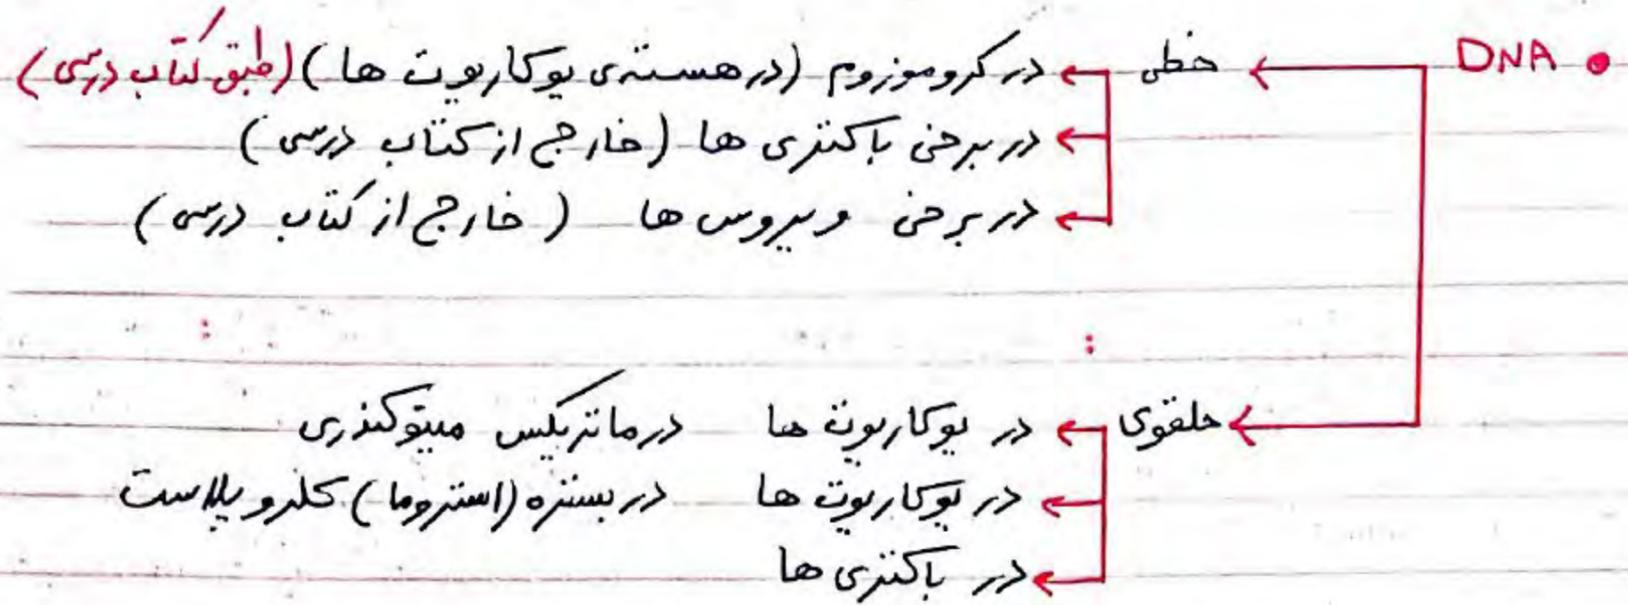 • DNA خطی در کروموزوم (در هسته‌ی یوکاریوت ها) (طبق کتاب درسی)
در برخی باکتری ها (خارج از کتاب درسی)
در برخی ویروس ها (خارج از کتاب درسی)
حلقوی در یوکاریوت ها در ماتریکس میتوکندری
در یوکاریوت ها در بستره (استروما) کلروپلاست
در باکتری ها